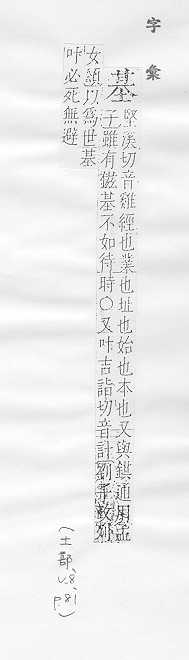 字彙
基
堅溪切音雞經也業也址也始也本也又與錤通用孟
子雖有鎡基不如待時○又叶吉詣切音計劉子政列
女頌以為世基
叶必死無避
(土部, v.8, p.81)